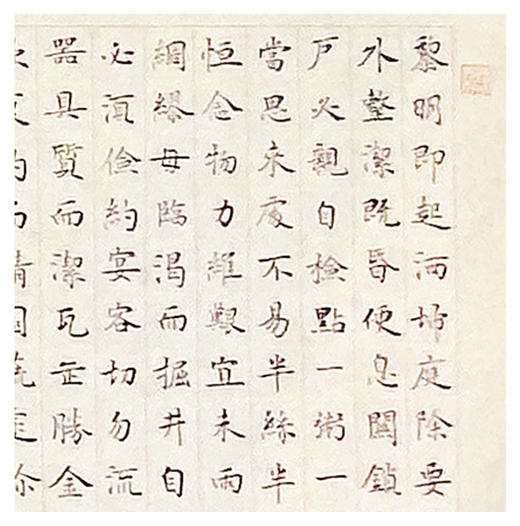 黎明即起洒埽庭除要
外整潔既昏便息關鎖
戶必親自檢點一粥一
當思來處不易半絲半
恒念物力維艱宜未雨
綢繆毋臨渴而掘井自
必湏儉約宴客切勿流
器具質而潔瓦缶勝金